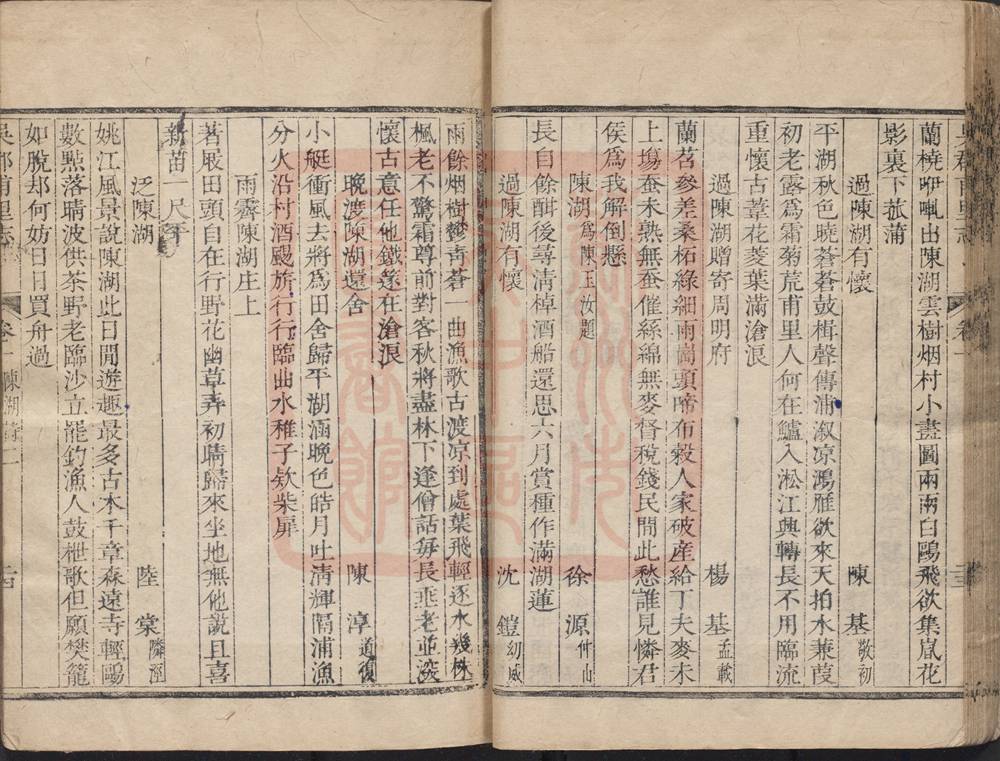 蘭橈咿啞出陳湖雲樹烟村小畫圖兩兩白鷗飛欲集嵐花
影裏下菰蒲
過陳湖有懷 陳基敬初
平湖秋色曉蒼蒼鼓楫聲傳浦溆凉鴻雁欲來天拍水蒹葭
初老露爲霜菊荒甫里人何在鱸入淞江興轉長不用臨流
重懷古葦花菱葉滿滄浪
過陳湖贈寄周明府 楊基孟載
蘭苕參差桑柘綠細雨崗頭啼布穀人家破産給丁夫麥未
上塲蚕未熟無蚕催絲綿無麥督税錢民間此愁誰見憐君
侯爲我解倒懸
陳湖爲陳玉汝題 徐源仲山
長白餘酣後尋清棹酒船還思六月賞種作滿湖蓮
過陳湖有懷 沈鎧幼威
雨餘烟樹鬱奇蒼一曲漁歌古渡凉到處葉飛輕逐水幾株
楓老不驚霜尊前對客秋將盡林下逢僧話每長垂老並深
懷古意任他鐵篴在滄浪
晚渡陳湖還舍 陳淳道復
小艇衝風去將爲田舍歸平湖涵晚色皓月吐清輝隔浦漁
分火沿村酒颺旂行行臨曲水稚子欵柴扉
雨霽陳湖庄上
著屐田頭自在行野花幽草弄初晴歸來坐地無他説且喜
新苗一尺平
泛陳湖 陸棠隣溼
姚江風景說陳湖此日閒遊趣最多古木千章森遠寺輕鷗
數點落晴波供茶野老臨沙立罷釣漁人鼓枻歌但願樊籠
如脫却何妨日日買舟過
吳郡甫里志 卷一 陳湖詩二